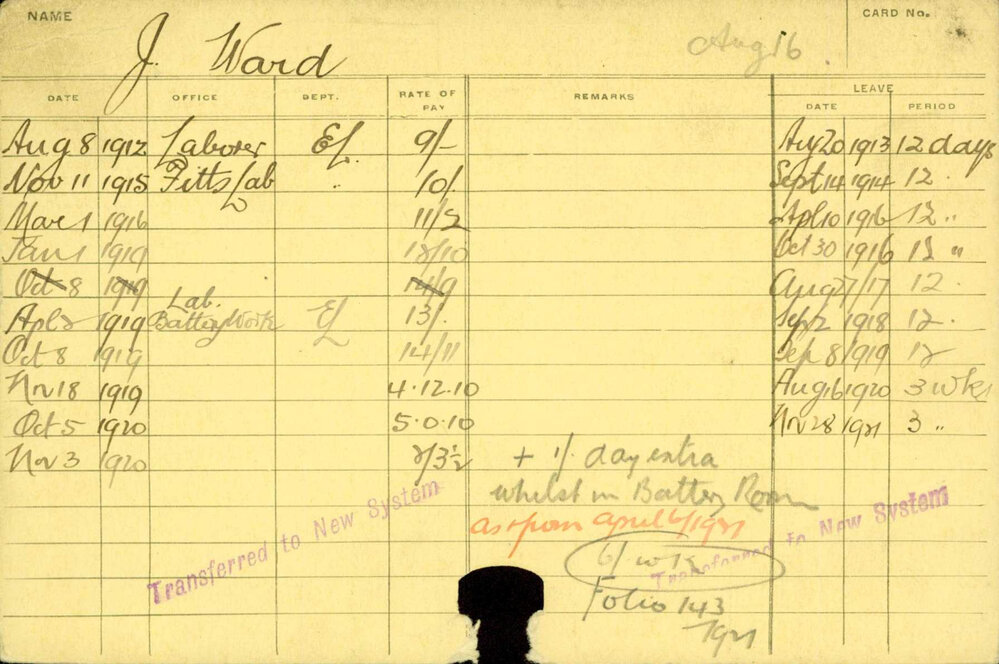 NAME
CARD No.
J. Ward
Aug 16
DATE OFFICE DEPT. RATE OF PAY REMARKS LEAVE
DATE PERIOD
Aug 8 1912 Laborer EL. 9/- Aug 20 1913 12 days
Nov 11 1915 Fitts Lab " 10/. Sept 14 1914 12 "
Mar 1 1916 11/2 Apl 10 1916 12 "
Jan 1 1919 12/10 Oct 30 1916 12 "
Oct 8 1919 14/9 Aug 27/17 12
Apl 2 1919 Lab. Battery Work EL 13/. Sep 2 1918 12
Oct 8 1919 14/11 Sep 8 1919 12
Nov 18 1919 4.12.10 Aug 16 1920 3 wks
Oct 5 1920 5.0.10 Nov 28 1921 3 "
Nov 3 1920 2/3½ + 1/. day extra
whilst in Battery Room
as from April 6/1921
6/ wk
Transferred to New System
Transferred to New System
Folio 143
1921